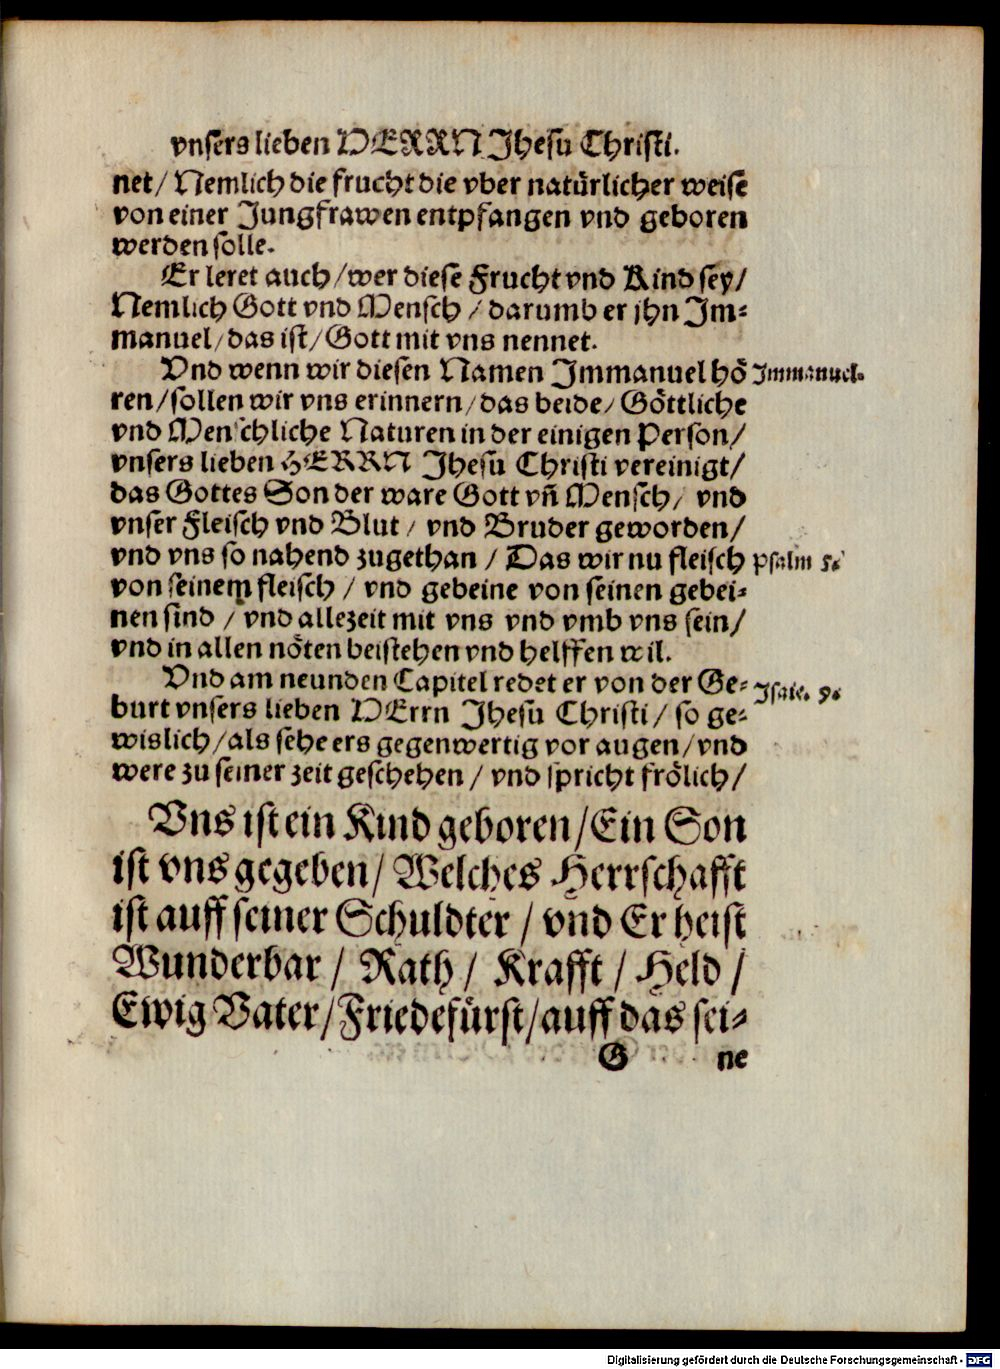 vnsers lieben HERRN Jhesu Christi.
net/ Nemlich die frucht die vber natürlicher weise
von einer Jungfrawen entpfangen vnd geboren
werden solle.
Er leret auch/wer diese Frucht vnd Kind sey/
Nemlich Gott vnd Mensch / darumb er jhn Im-
manuel/das ist/Gott mit vns nennet.
Vnd wenn wir diesen Namen Immanuel hö
Immanuel.
ren/sollen wir vns erinnern/das beide/ Göttliche
vnd Menschliche Naturen in der einigen Person/
vnsers lieben HERRN Jhesu Christi vereinigt/
das Gottes Son der ware Gott vñ Mensch/ vnd
vnser Fleisch vnd Blut / vnd Bruder geworden/
vnd vns so nahend zugethan / Das wir nu fleisch
Psalm 5.
von seinem fleisch / vnd gebeine von seinen gebei-
nen sind / vnd allezeit mit vns vnd vmb vns sein/
vnd in allen nöten beistehen vnd helffen wil.
Vnd am neunden Capitel redet er von der Ge-
Jsaie. 9.
burt vnsers lieben HErrn Jhesu Christi/ so ge-
wislich/als sehe ers gegenwertig vor augen/vnd
were zu seiner zeit geschehen / vnd spricht frölich/
Vns ist ein Kind geboren/Ein Son
ist vns gegeben/ Welches Herrschafft
ist auff seiner Schuldter / vnd Er heist
Wunderbar / Rath / Krafft / Held /
Ewig Vater/Friedefürst/auff das sei-
G ne
Digitalisierung gefördert durch die Deutsche Forschungsgemeinschaft - DFG